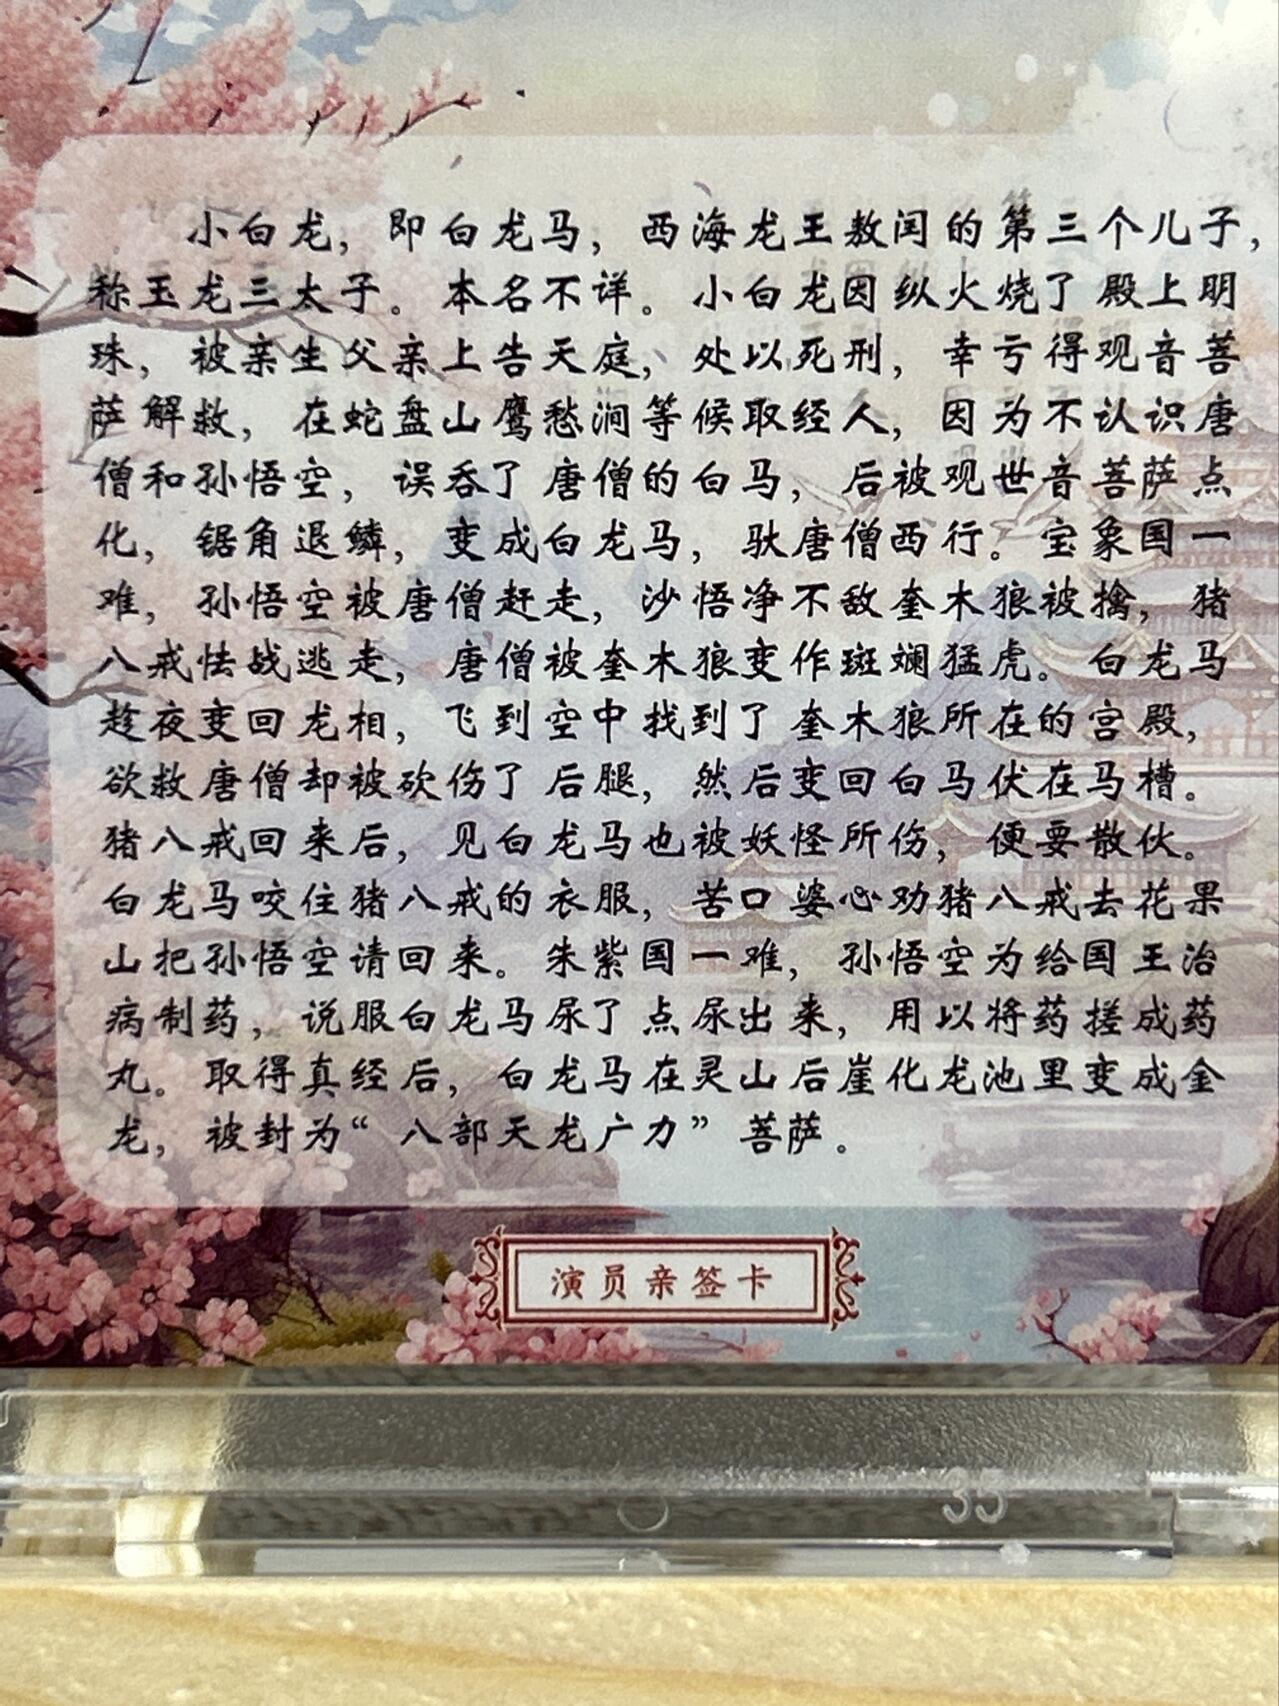 小白龙，即白龙马，西海龙王敖闰的第三个儿子，
称玉龙三太子。本名不详。小白龙因纵火烧了殿上明
珠，被亲生父亲上告天庭，处以死刑，幸亏得观音菩
萨解救，在蛇盘山鹰愁涧等候取经人，因为不认识唐
僧和孙悟空，误吞了唐僧的白马，后被观世音菩萨点
化，锯角退鳞，变成白龙马，驮唐僧西行。宝象国一
难，孙悟空被唐僧赶走，沙悟净不敌奎木狼被擒，猪
八戒怯战逃走，唐僧被奎木狼变作斑斓猛虎。白龙马
趁夜变回龙相，飞到空中找到了奎木狼所在的宫殿，
欲救唐僧却被砍伤了后腿，然后变回白马伏在马槽。
猪八戒回来后，见白龙马也被妖怪所伤，便要散伙。
白龙马咬住猪八戒的衣服，苦口婆心劝猪八戒去花果
山把孙悟空请回来。朱紫国一难，孙悟空为给国王治
病制药，说服白龙马尿了点尿出来，用以将药搓成药
丸。取得真经后，白龙马在灵山后崖化龙池里变成金
龙，被封为“八部天龙广力”菩萨。
演员亲签卡
35